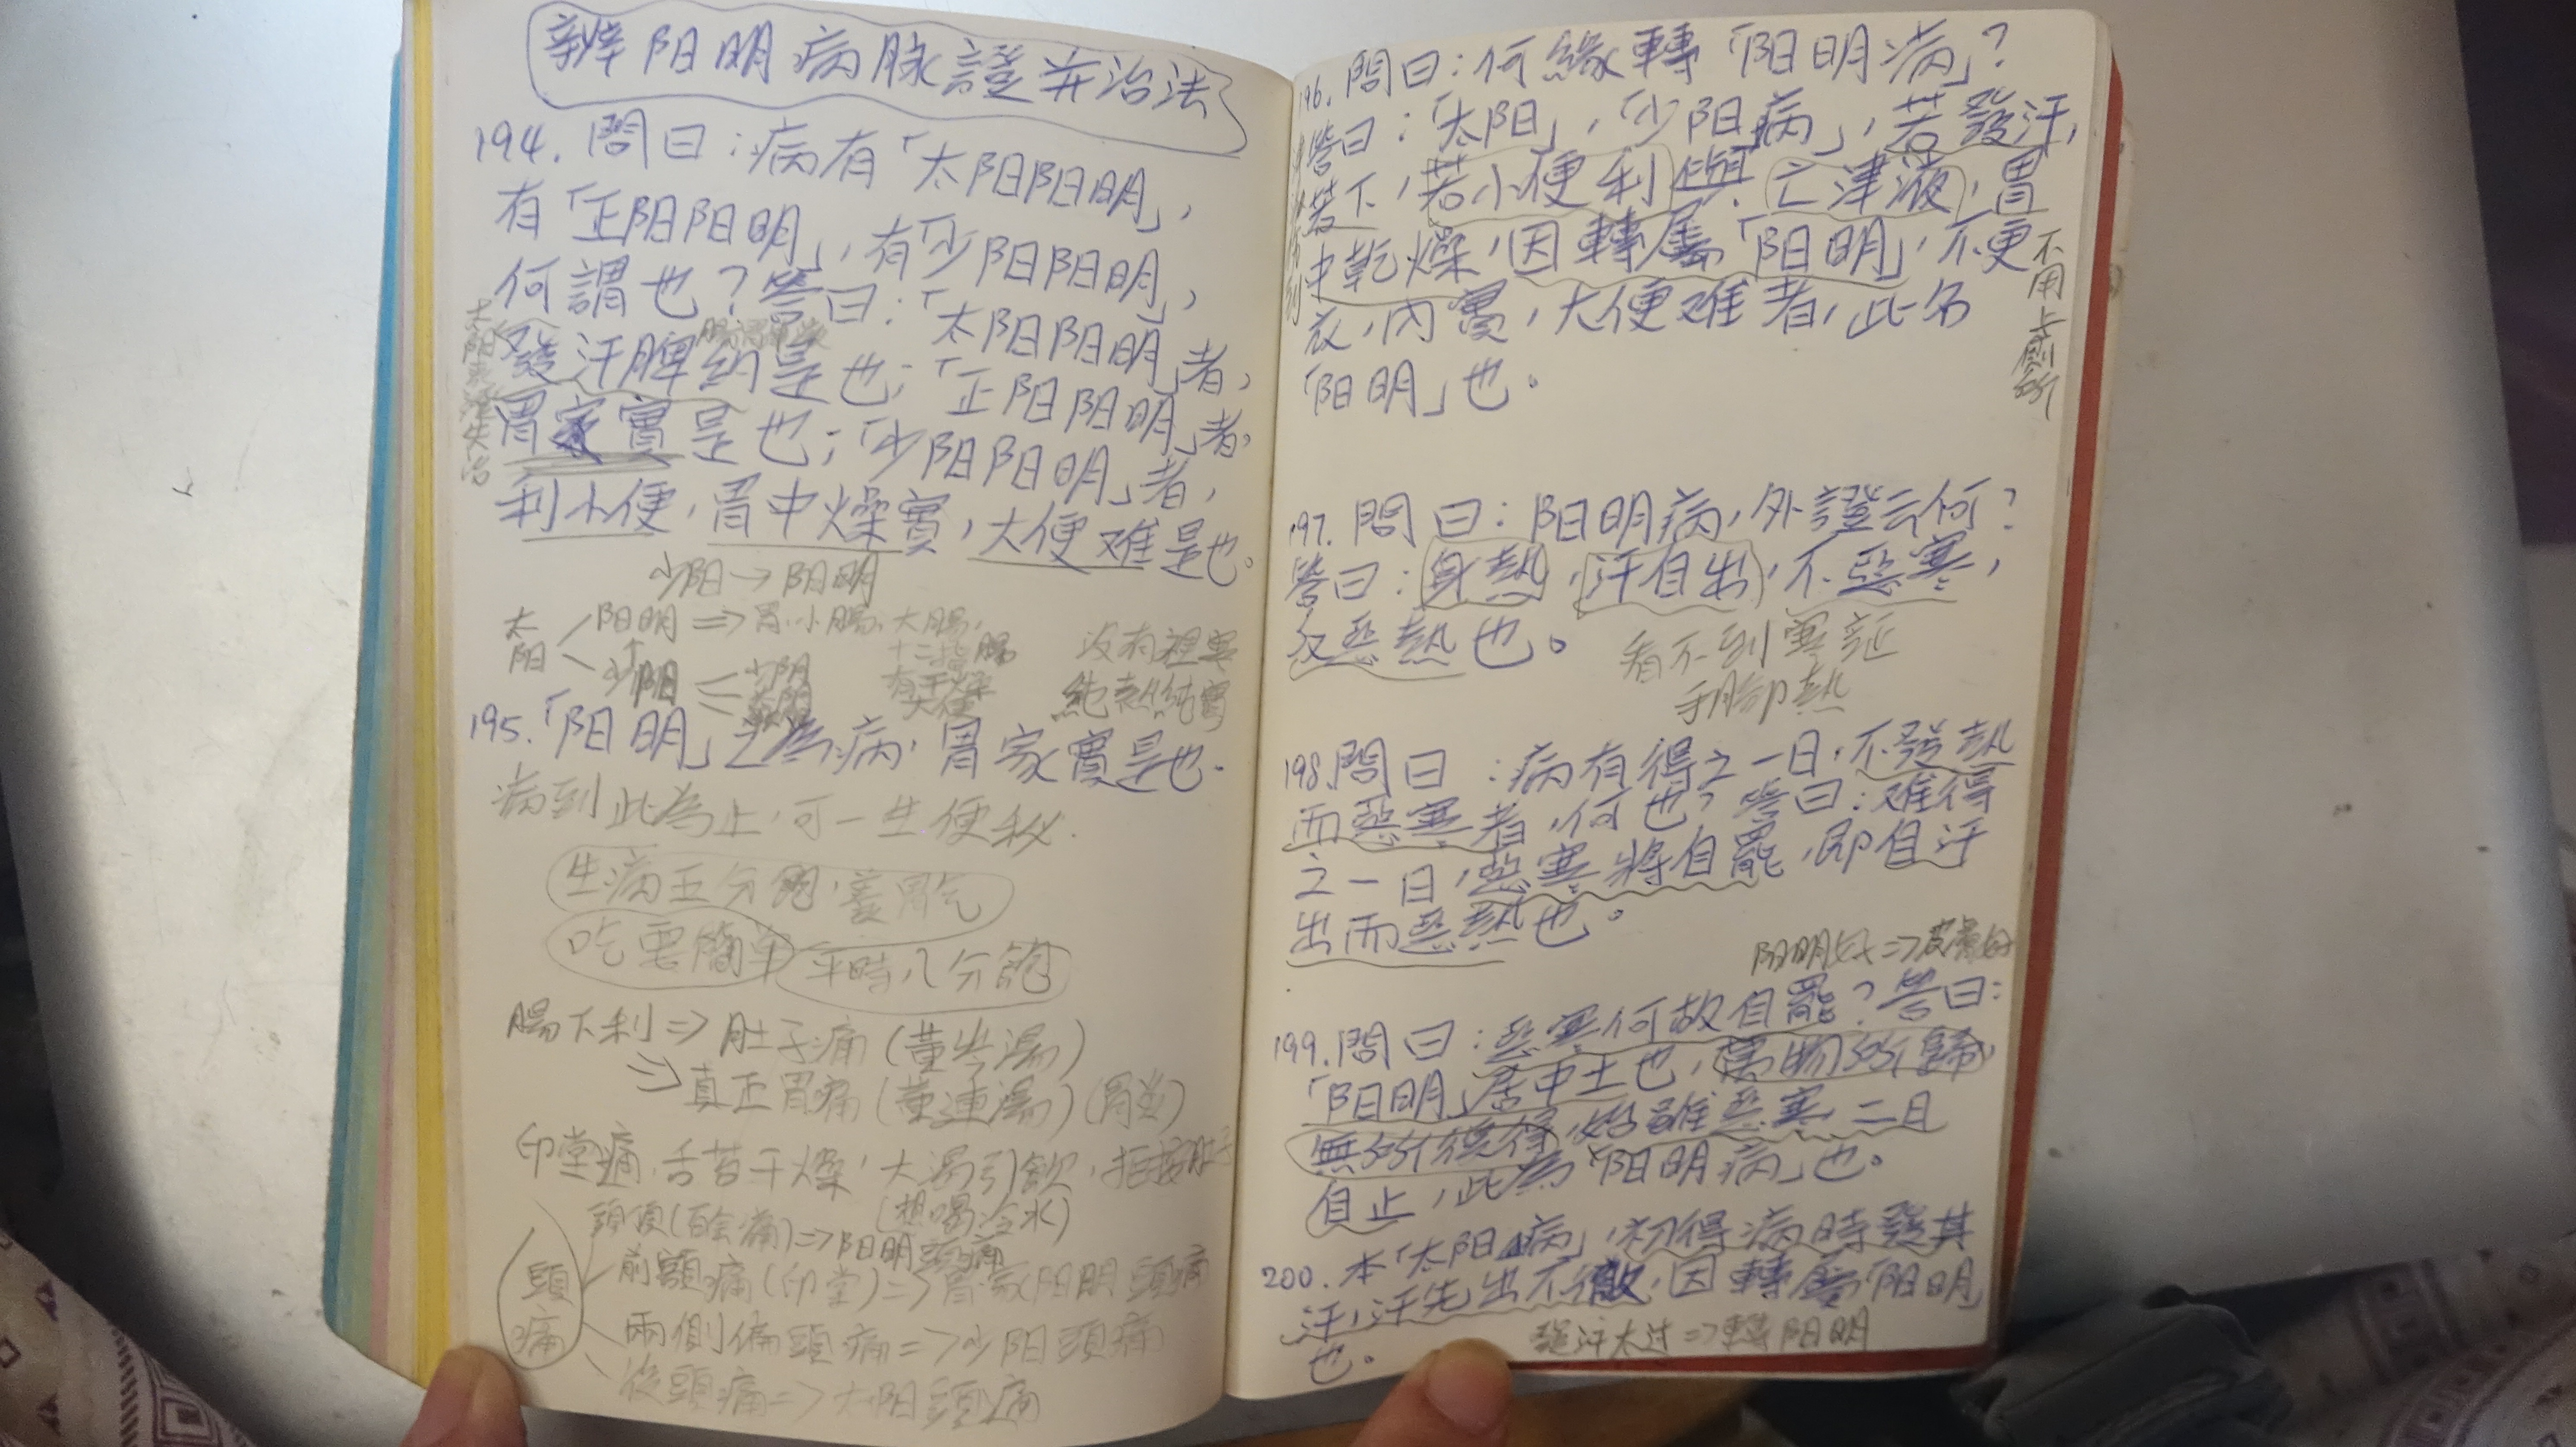 辨阳明病脉證并治法
194. 問曰：病有「太阳阳明」，
有「正阳阳明」，有「少阳阳明」，
何謂也？答曰：「太阳阳明」者，
發汗脾約是也；「正阳阳明」者，
胃家實是也；「少阳阳明」者，
利小便，胃中燥實，大便难是也。
少阳→阳明
太阳
阳明 => 胃、小腸、大腸、
十二指腸
有干燥
大便
没有裡寒
純熱純實
少阳
少阴
195.「阳明」之為病，胃家實是也.
病到此為止，可一生便秘.
生病五分飽，養胃气
吃要簡单 平時八分飽
腸下利 => 肚子痛 (黄芩湯)
=> 真正胃痛 (黄連湯) (胃炎)
印堂痛，舌苔干燥，大渴引飲，拒按肚子
(想喝冷水)
頭痛
頭頂(百会痛) => 阳明頭痛
前額痛 (印堂) => 胃家阳明頭痛
兩側偏頭痛 => 少阳頭痛
後頭痛 => 太阳頭痛
196. 問曰：何緣轉「阳明病」？
答曰：「太阳」，「少阳病」，若發汗，
若下，若小便利與，亡津液，胃
中乾燥，因轉屬「阳明」，不更
衣，內實，大便难者，此名
「阳明」也。
不用上厠所
197. 問曰：阳明病，外證云何？
答曰：身熱，汗自出，不惡寒，
反惡熱也。
看不到寒証
手脚熱
198. 問曰：病有得之一日，不發熱
而惡寒者，何也？答曰：难得
之一日，惡寒將自罷，即自汗
出而惡熱也。
阳明好 => 皮膚好
199. 問曰：惡寒何故自罷？答曰：
「阳明」居中土也，萬物所歸，
無所復傳，始雖惡寒，二日
自止，此為「阳明病」也。
200. 本「太阳病」，初得病時發其
汗，汗先出不徹，因轉屬「阳明」
也。
發汗太过 => 轉阳明